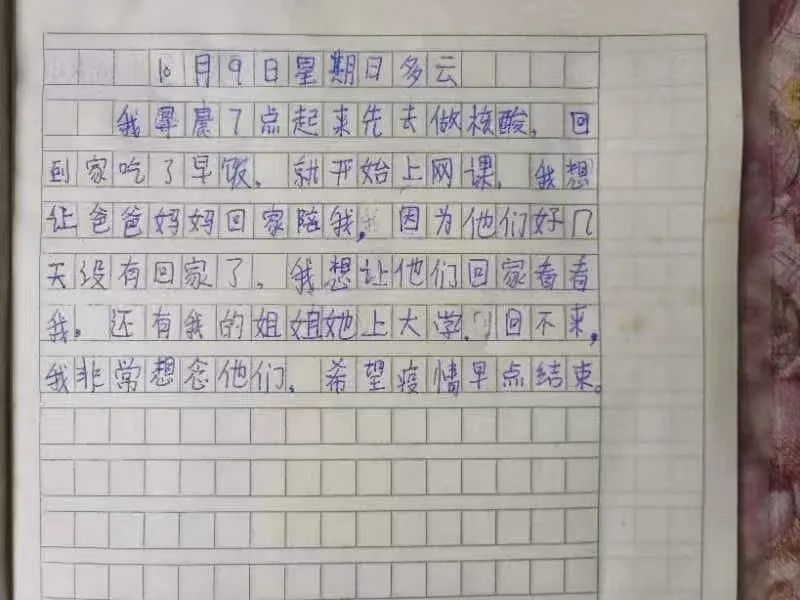 10月9日星期日多云
我晨7点起来先去做核酸,回
到家吃了早饭,就开始上网课,我想
让爸爸妈妈回家陪我,因为他们好几
天没有回家了,我想让他们回家看看
我。还有我的姐姐她上大学,回不来,
我非常想念他们,希望疫情早点结束。